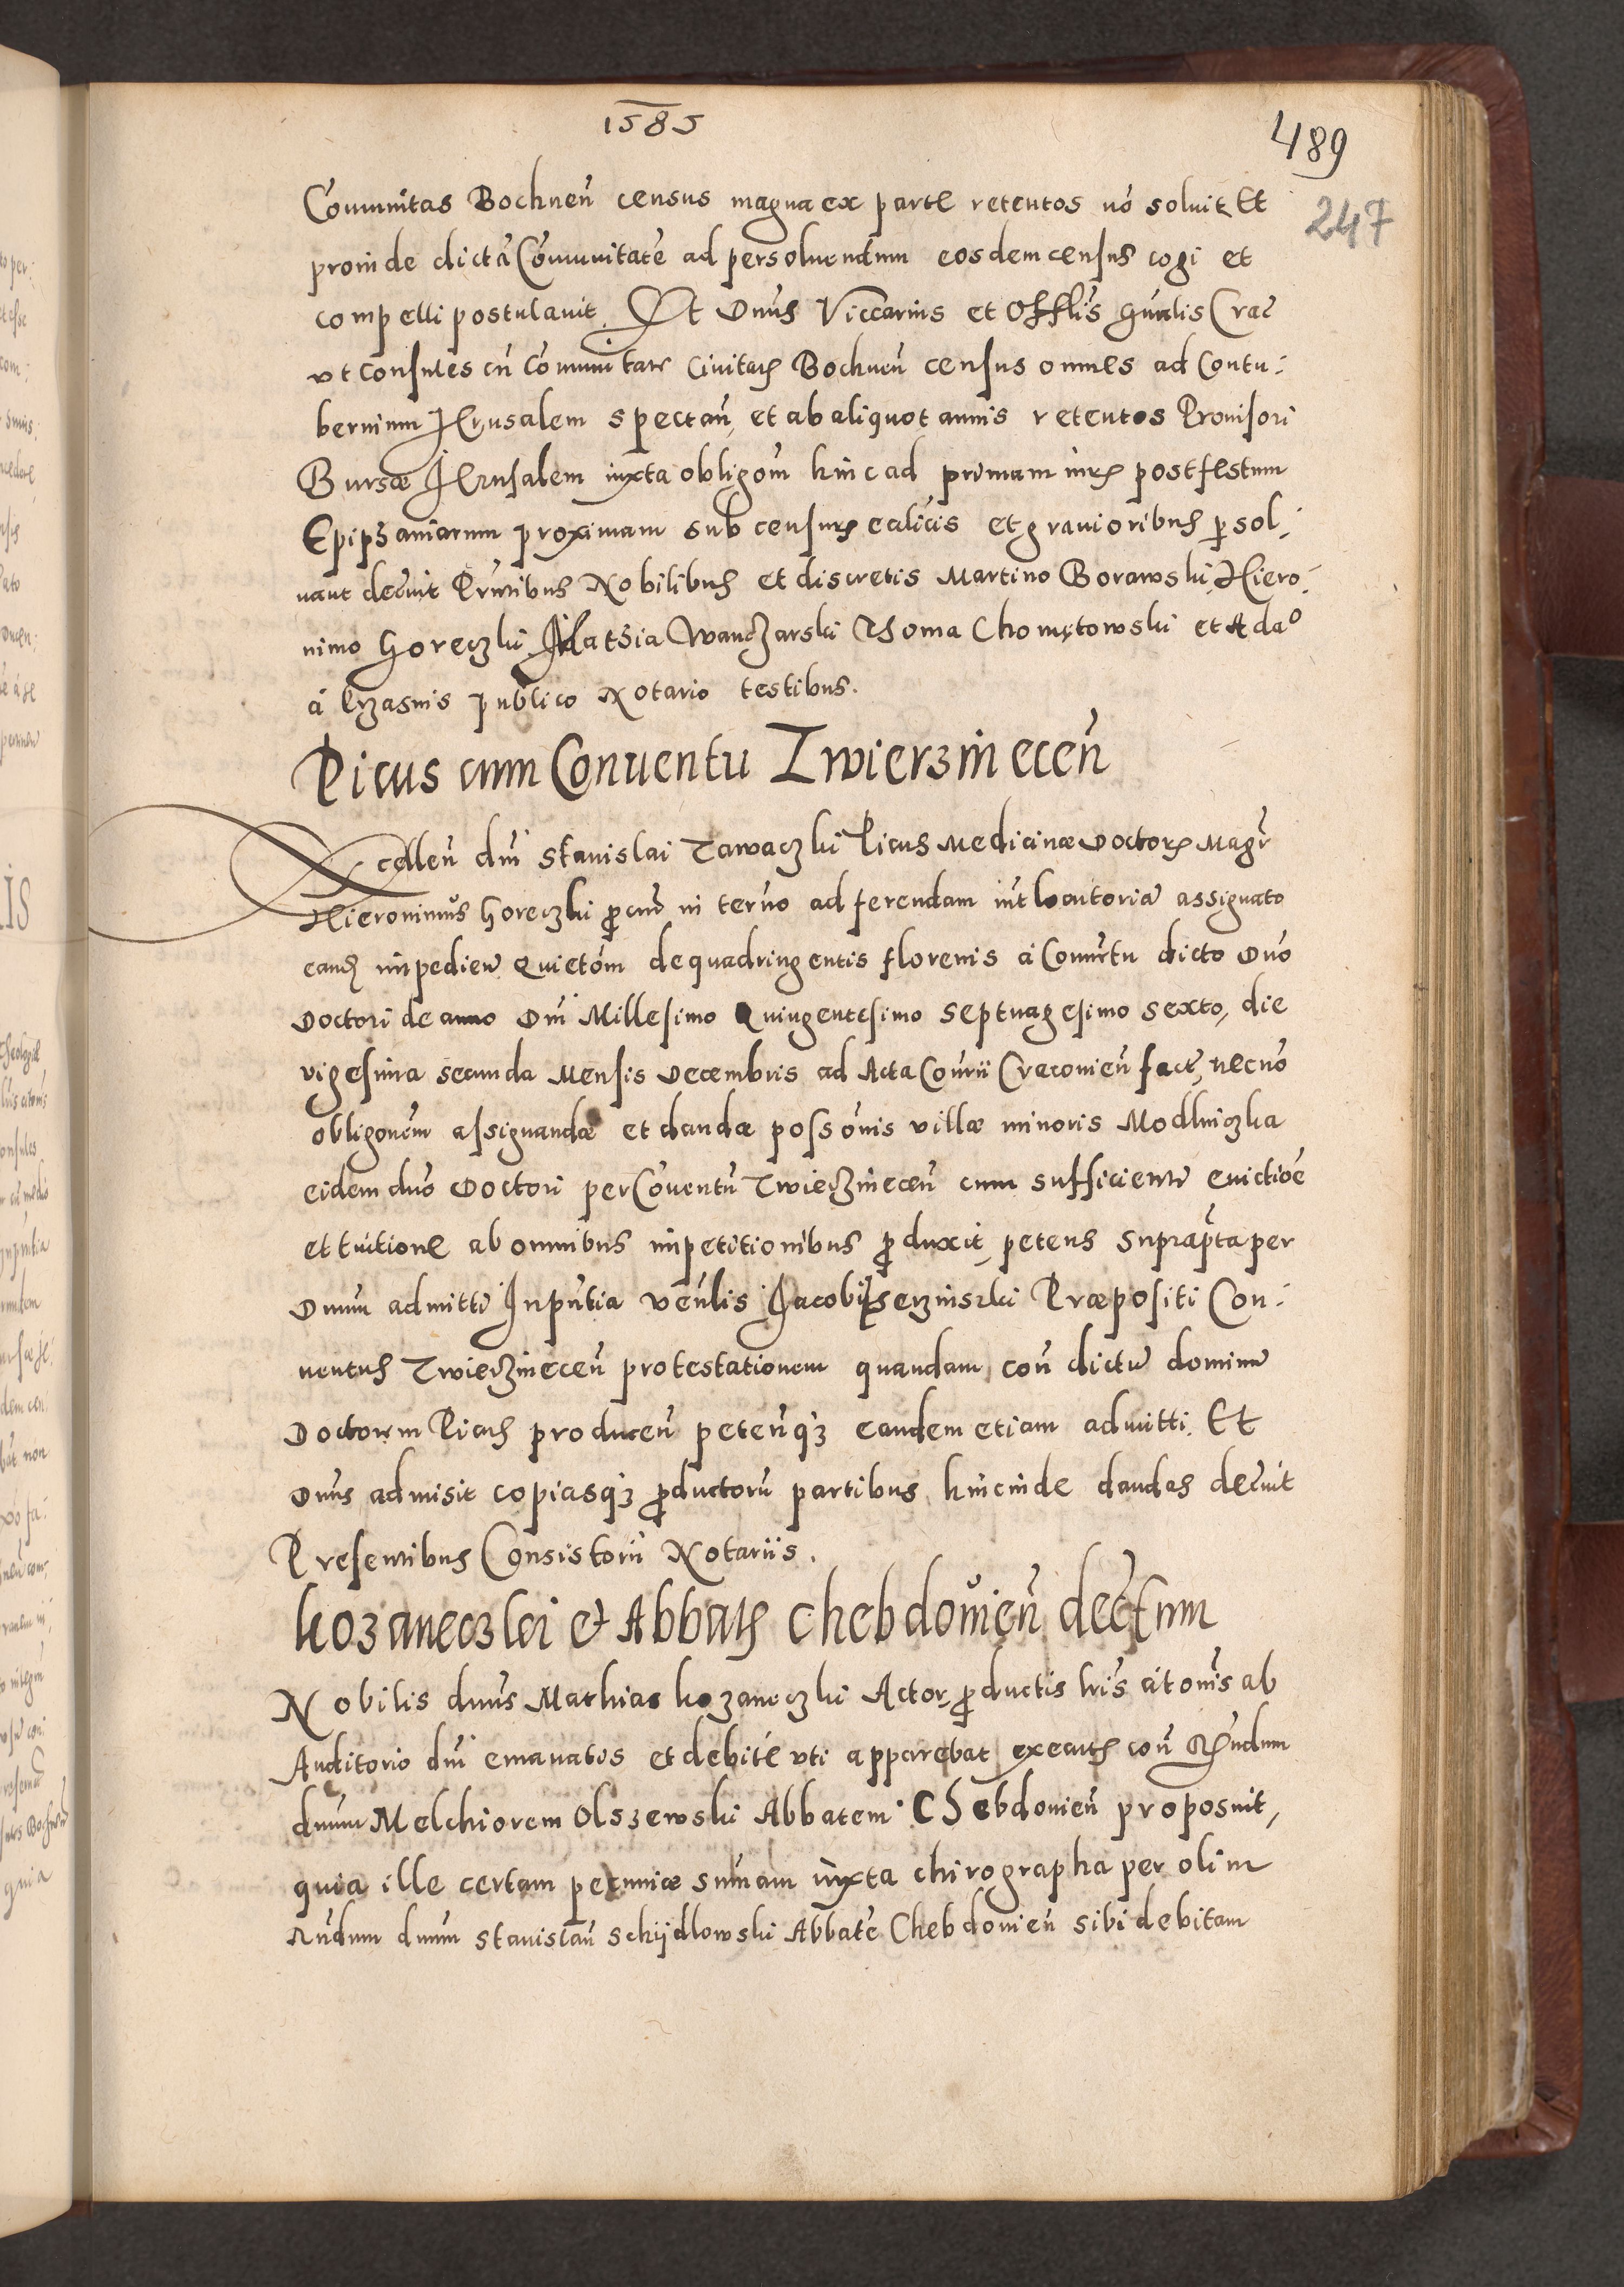 1585
489
247
Com̄unitas Bochneñ census magna ex parte retentos nō soluit, Et
proinde dictā Com̄unitatē ad persoluendum eosdem census cogi et
compelli postulauit. Et Dnūs Viccarius et Offlīs Gn̄alis Crac̄
vt consules cū Com̄unitate Ciuitatis Bochneñ census omnes ad Contu:
bernium Jerusalem spectañ, et ab aliquot annis retentos Prouisori
Bursæ Jerusalem iuxta obligōm hinc ad primam iuris post festum
Epiphaniarum proximam sub censuris eccl̄icis et grauioribus persol:
uant decreuit Pnt̄ibus Nobilibus et discretis Martino Borawski, Hiero:
nimo Goreczki, Mathia Wanczarski Thoma Chomętowski et Adao
à Crzasnis publico Notario testibus.
Picus cum Conuentu Zwierzineceñ
Excelleñ dnī Stanislai Tawaczki Picus Medicinæ Doctoris Magr̄
Hieronimus Goreczki procur in termo ad ferendam int̄locutoriam assignato
eandem impedien̄ Quietōm de quadringentis florenis à Conuētu dicto Dnō
Doctori de anno Dnī Millesimo Quingentesimo Septuagesimo sexto, die
vigesima secunda Mensis Decembris ad Acta Consrii Cracouieñ fact, necnō
obligōnem assignandæ et dandæ possōnis villæ minoris Modlniczka
eidem dnō Doctori per Cōuentū Zwierzineceñ cum sufficienti euictiōe
et tuitione ab omnibus impetitionibus produxit, petens supraptā per
Dnum admitti In pn̄tia ven̄lis Jacobi Præpositi Con:
uentus Zwierzineceñ protestationem quandam con̄ dictum dominum
Doctorem Picus produceñ peteñq3 eandem etiam admitti. Et
Dnus admisit copiasq3 productorū partibus hincinde dandas decreuit
Presentibus Consistorii Notariis.
Kozaneczki et Abbatis Chebdouieñ decretum
Nobilis dnūs Mathias Kozaneczki Actor, productis lris̄ citōnis ab
Auditorio dnī emanatis et debite vti apparebat executis con̄ Rn̄dum
dnum Melchiorem Olszewski Abbatem Chebdouieñ proposuit,
quia ille certam pecuniæ sum̄am iuxta chirographa per olim
Rn̄dum dnum Stanislaū Schÿdlowski Abbatē Chebdouieñ sibi debitam